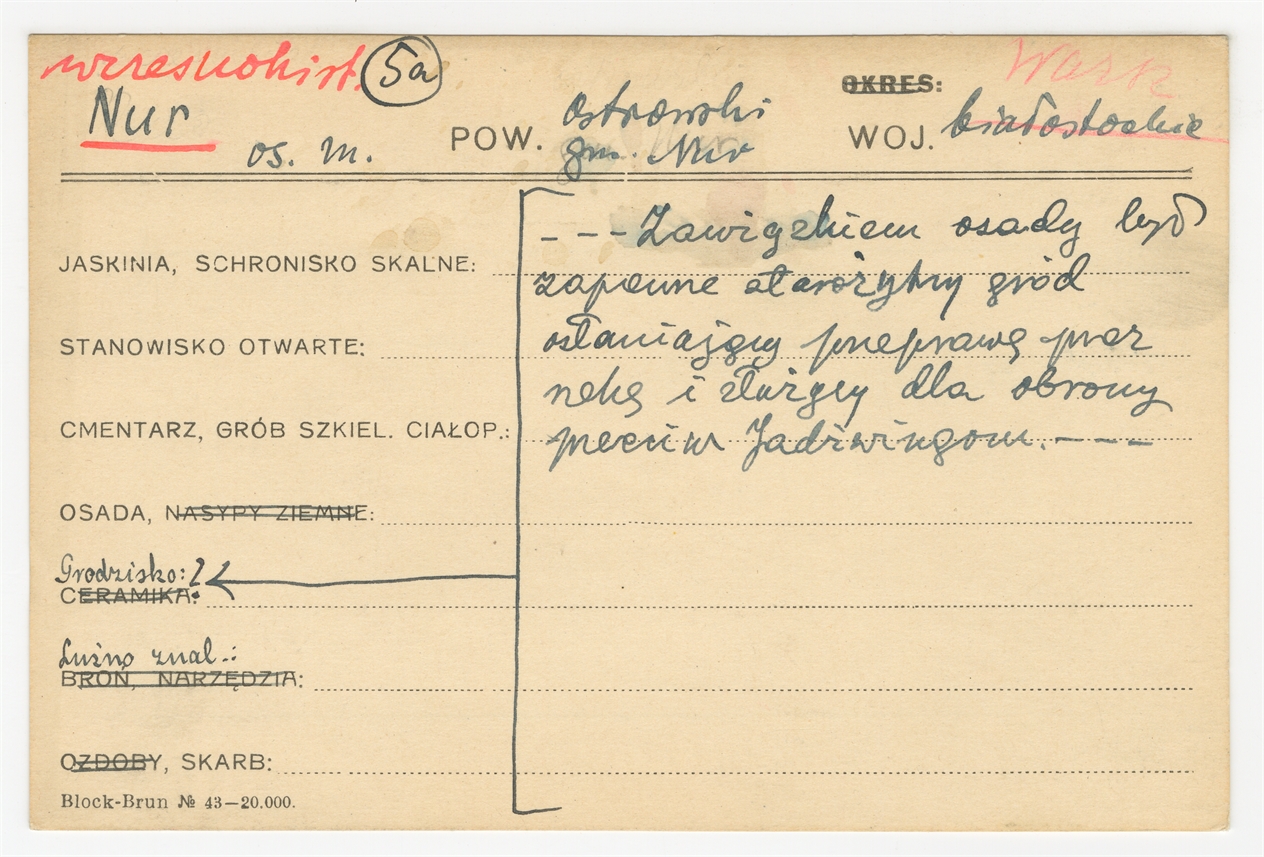 wczesnohist. 5a
Warsz
OKRES:
Nur
os. m.
POW. Ostrowski
gm. Nur
WOJ. białostockie
- - - Zawiązkiem osady był
zapewne starożytny gród
osłaniający przeprawę przez
rzekę i służący dla obrony
przeciw Jadźwingom. - - -
JASKINIA, SCHRONISKO SKALNE:
STANOWISKO OTWARTE:
CMENTARZ, GRÓB SZKIEL. CIAŁOP.:
OSADA, NASYPY ZIEMNE:
Grodzisko: ?
CERAMIKA:
Luźno znal.:
BROŃ, NARZĘDZIA:
OZDOBY, SKARB:
Block-Brun № 43—20.000.